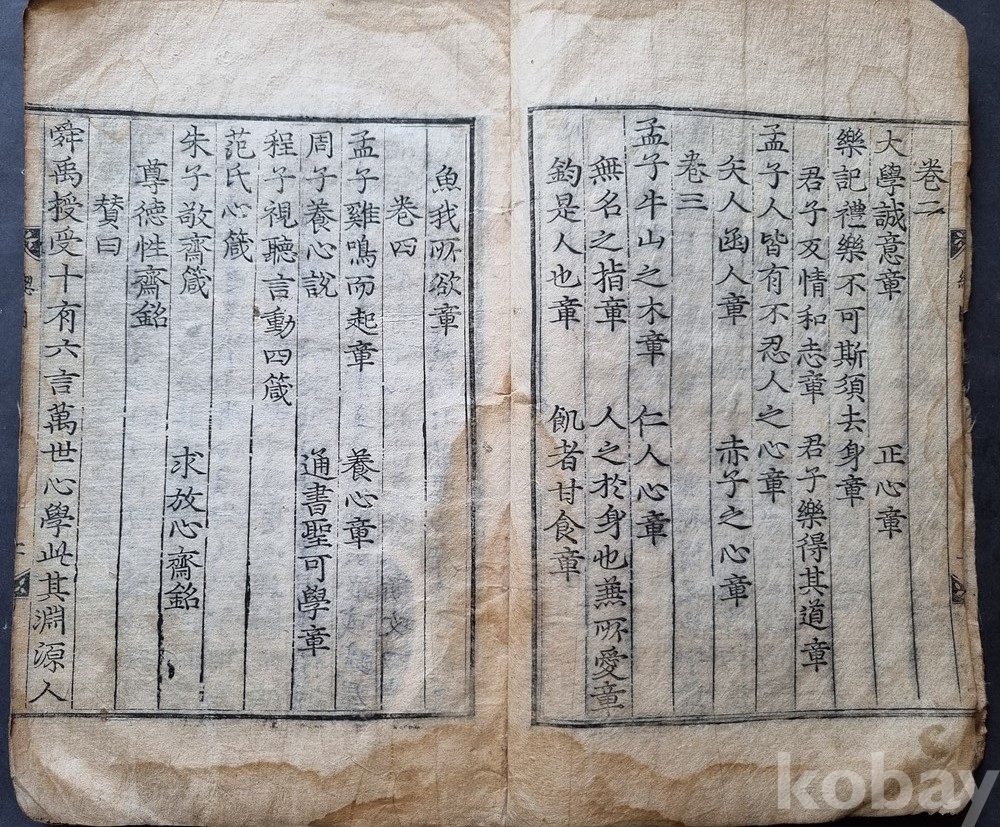 卷二
大學誠意章 正心章
樂記禮樂不可斯須去身章
君子反情和志章 君子樂得其道章
孟子人皆有不忍人之心章
矢人函人章 赤子之心章
卷三
孟子牛山之木章 仁人心章
無名之指章 人之於身也兼所愛章
鈞是人也章 飢者甘食章
魚我所欲章
卷四
孟子雞鳴而起章 養心章
周子養心說 通書聖可學章
程子視聽言動四箴
范氏心箴
朱子敬齋箴 求放心齋銘
尊德性齋銘
贊曰
舜禹授受十有六言萬世心學此其淵源人
kobay